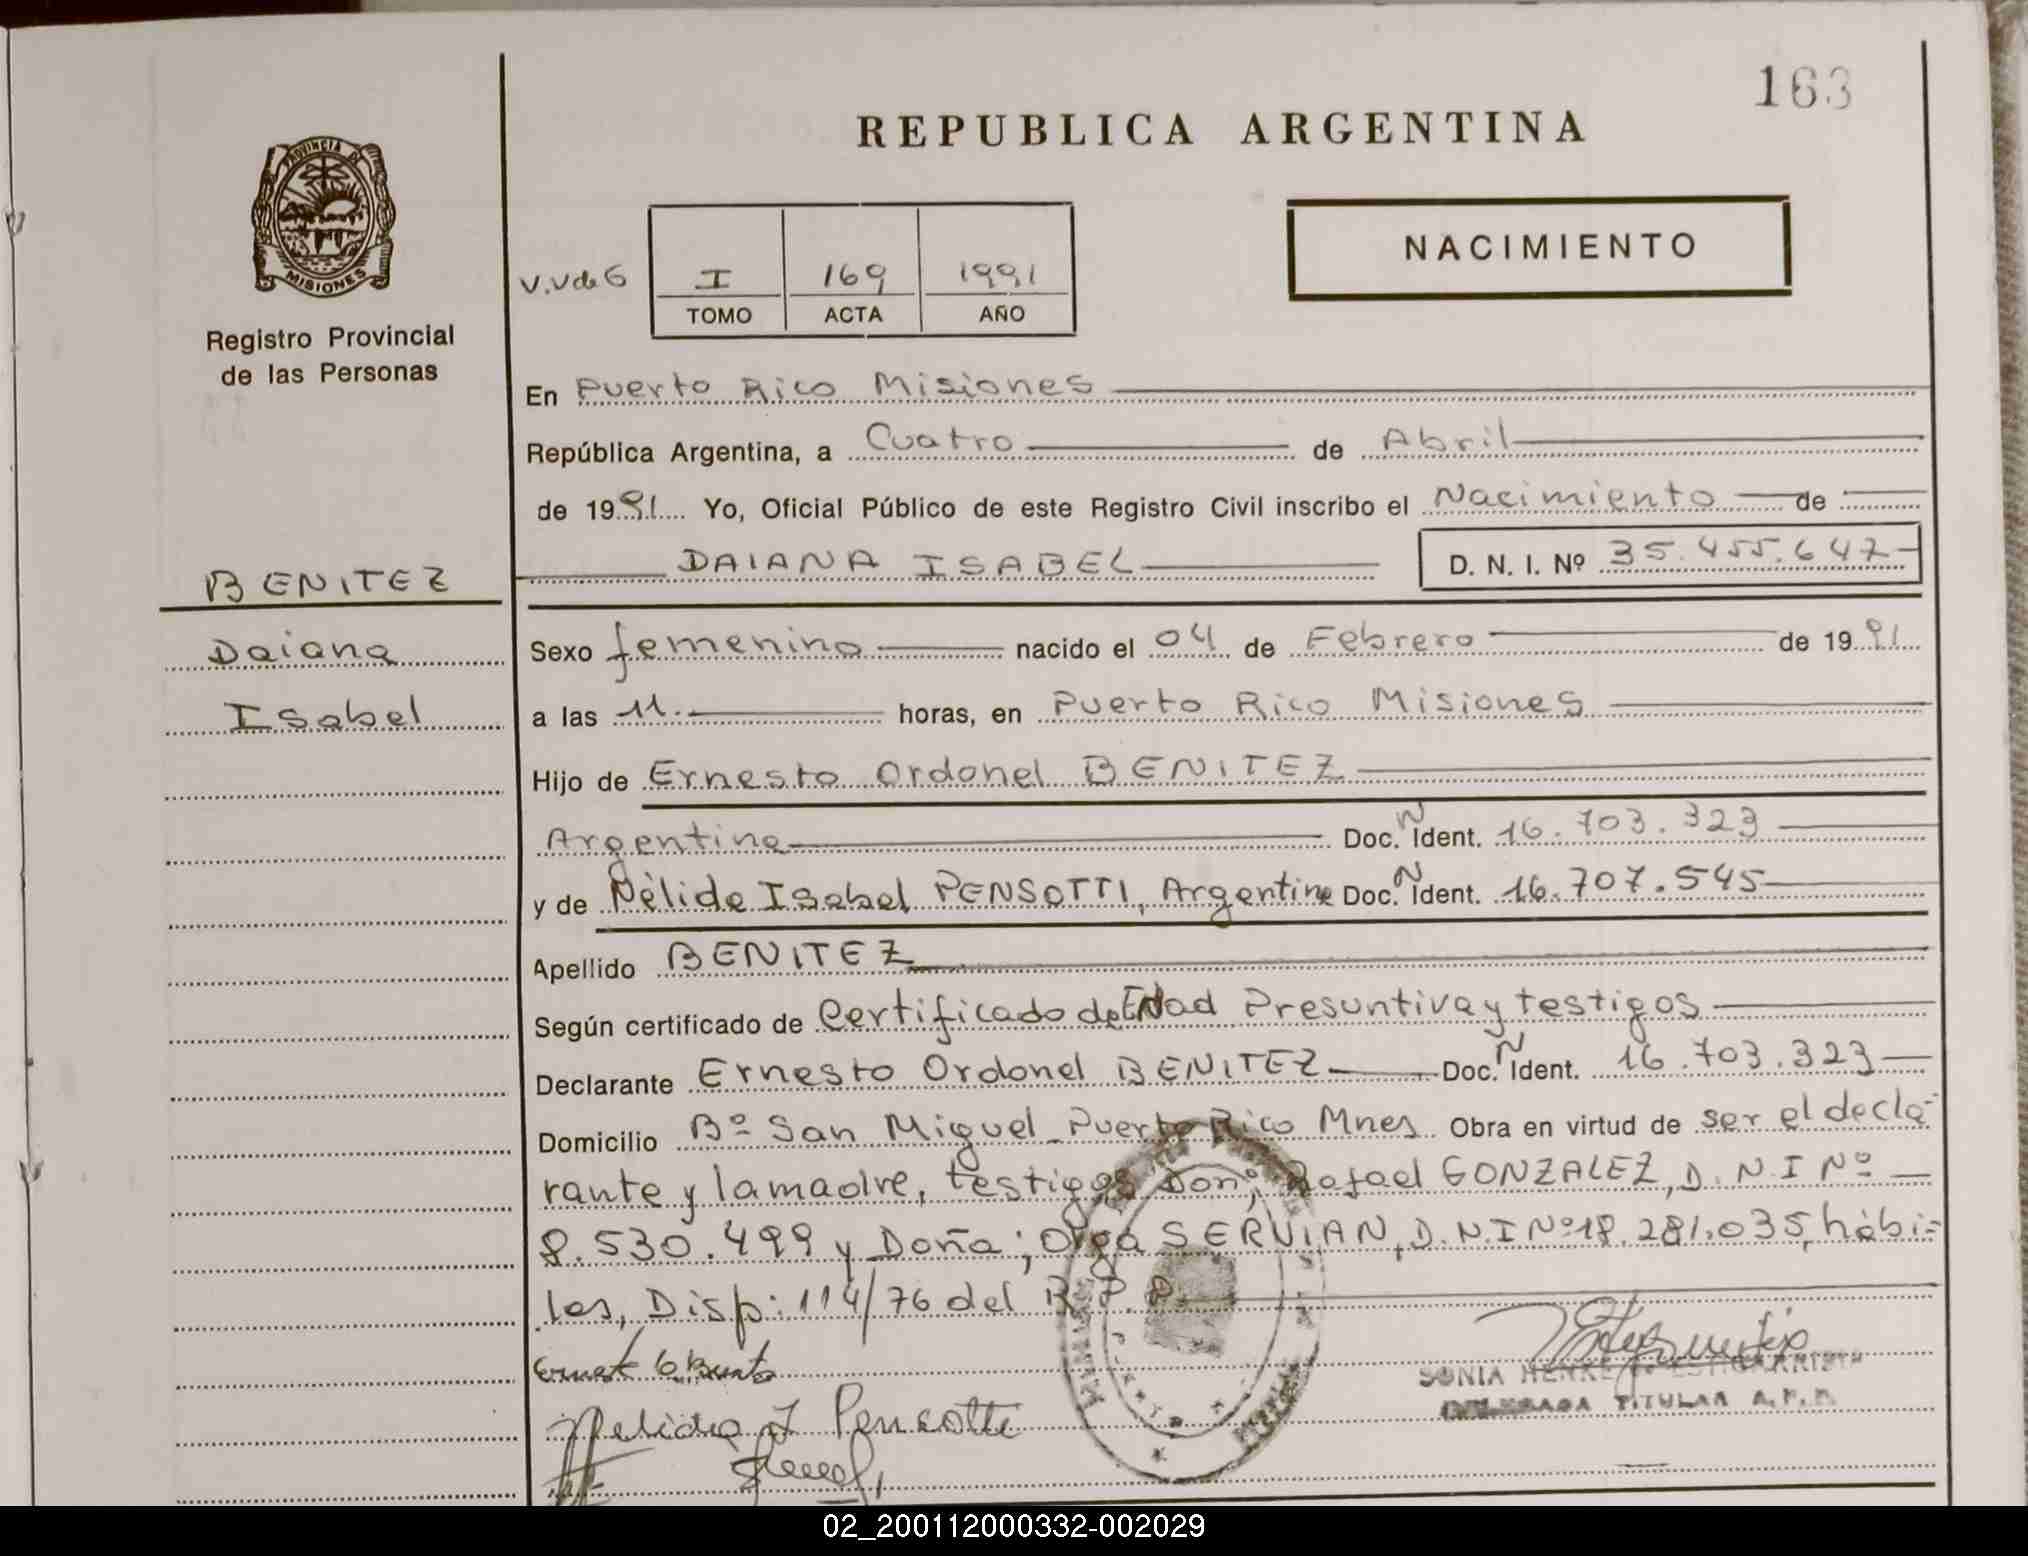 163
REPUBLICA ARGENTINA
PROVINCIA DE
MISIONES
Registro Provincial
de las Personas
NACIMIENTO
V.V de G
I 169 1991
TOMO ACTA AÑO
En Puerto Rico Misiones
República Argentina, a Cuatro de Abril
de 1991 Yo, Oficial Público de este Registro Civil inscribo el Nacimiento de
DAIANA ISABEL D. N. I. Nº 35.455.647
BENITEZ
Daiana
Isabel
Sexo femenino nacido el 04 de Febrero de 1991
a las 11. horas, en Puerto Rico Misiones
Hijo de Ernesto Ordonel BENITEZ
Argentina Doc. N Ident. 16.703.323
y de Nélida Isabel PENSOTTI, Argentina Doc. N Ident. 16.707.545
Apellido BENITEZ
Según certificado de Certificado de Edad Presuntiva y testigos
Declarante Ernesto Ordonel BENITEZ Doc. N Ident. 16.703.323
Domicilio Bº San Miguel Puerto Rico Mnes Obra en virtud de ser el decla-
rante y la madre, testigos Don; Rafael GONZALEZ, D.N.I Nº
8.530.499 y Doña; Olga SERVIAN, D.N.I Nº 18.281.035, hábi=
les, Disp: 114/76 del R.P.P.
Nelida I Pensotti
SONIA HENKE
DELEGADA TITULAR
02_200112000332-002029